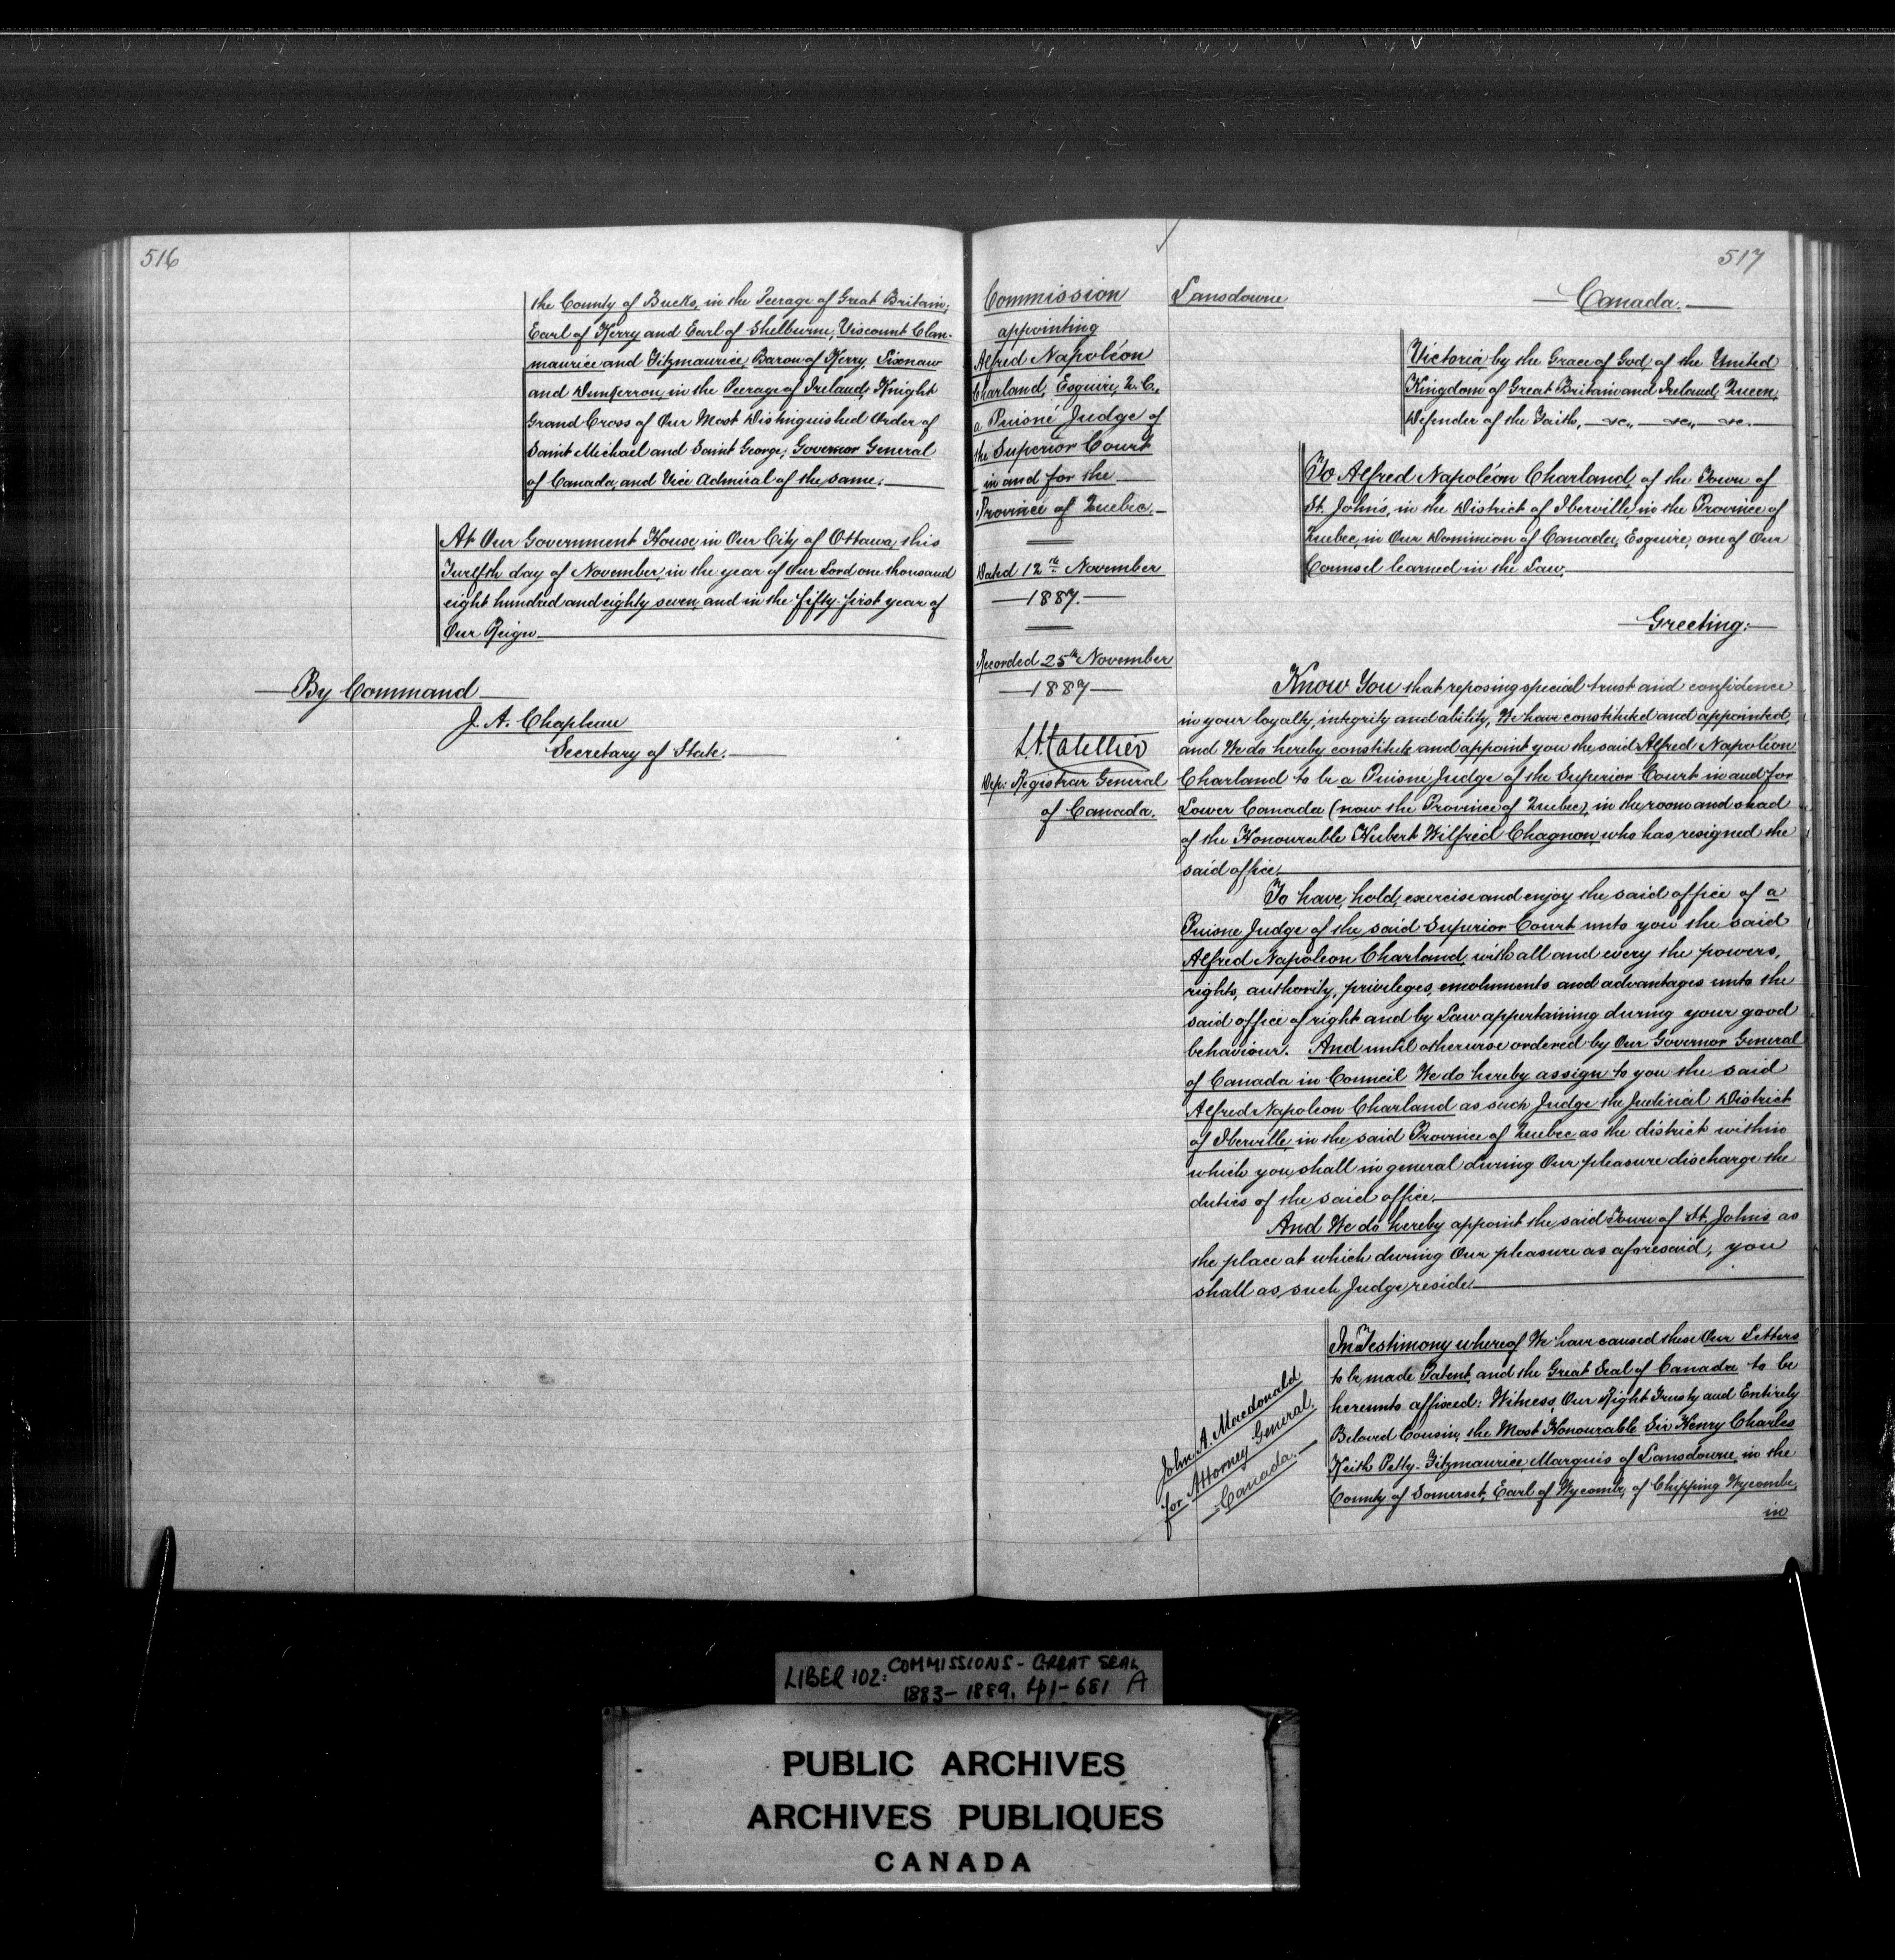 516
the County of Bucks, in the Peerage of Great Britain;
Earl of Kerry and Earl of Shelburne, Viscount Clan-
maurice and Fitzmaurice, Baron of Kerry, Lixnaw
and Dunkerron, in the Peerage of Ireland; Knight
Grand Cross of Our Most Distinguished Order of
Saint Michael and Saint George; Governor General
of Canada, and Vice Admiral of the same.
At Our Government House, in Our City of Ottawa, this
Twelfth day of November, in the year of Our Lord one thousand
eight hundred and eighty seven, and in the fifty-first year of
Our Reign.
By Command
J. A. Chapleau
Secretary of State.
517
Commission
appointing
Alfred Napoléon
Charland, Esquire, Q.C.,
a Puisné Judge of
the Superior Court
in and for the
Province of Quebec.
Dated 12th November
1887.
Recorded 25th November
1887
L.A. Catellier
Dep: Registrar General
of Canada.
Lansdowne
Canada.
Victoria, by the Grace of God, of the United
Kingdom of Great Britain and Ireland, Queen,
Defender of the Faith, &c., &c., &c.
To Alfred Napoléon Charland, of the Town of
St. John's, in the District of Iberville in the Province of
Quebec, in Our Dominion of Canada, Esquire, one of Our
Counsel learned in the Law,
Greeting:
Know You that reposing special trust and confidence
in your loyalty, integrity and ability, We have constituted and appointed,
and We do hereby constitute and appoint you the said Alfred Napoléon
Charland to be a Puisné Judge of the Superior Court in and for
Lower Canada (now the Province of Quebec), in the room and stead
of the Honourable Hubert Wilfrid Chagnon, who has resigned the
said office.
To have, hold, exercise and enjoy the said office of a
Puisne Judge of the said Superior Court unto you the said
Alfred Napoleon Charland, with all and every the powers,
rights, authority, privileges, emoluments and advantages unto the
said office of right and by Law appertaining during your good
behaviour. And until otherwise ordered by Our Governor General
of Canada in Council We do hereby assign to you the said
Alfred Napoleon Charland as such Judge the Judicial District
of Iberville, in the said Province of Quebec as the district within
which you shall in general during Our pleasure discharge the
duties of the said office.
And We do hereby appoint the said Town of St. John's as
the place at which during Our pleasure as aforesaid, you
shall as such Judge reside.
John A. Macdonald
for Attorney General,
Canada.
In Testimony whereof We have caused these Our Letters
to be made Patent, and the Great Seal of Canada to be
hereunto affixed: Witness, Our Right Trusty and Entirely
Beloved Cousin, the Most Honourable Sir Henry Charles
Keith Petty-Fitzmaurice, Marquis of Lansdowne, in the
County of Somerset, Earl of Wycombe, of Chipping Wycombe,
in
LIBER 102: COMMISSIONS - GREAT SEAL
1883-1889, 41-681 A
PUBLIC ARCHIVES
ARCHIVES PUBLIQUES
CANADA